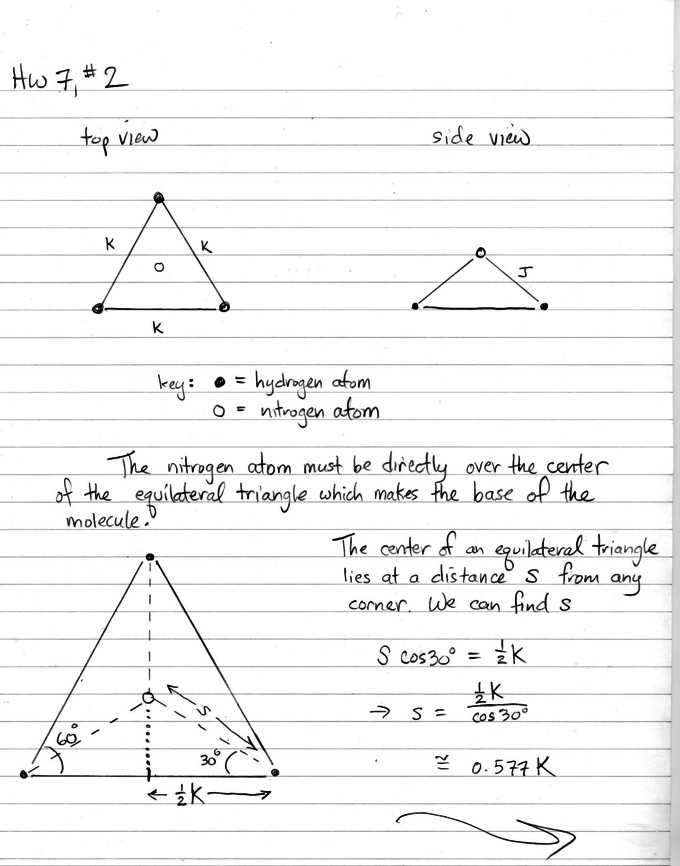 Hw 7, #2
top view
side view
K
K
K
J
key: ● = hydrogen atom
○ = nitrogen atom
The nitrogen atom must be directly over the center
of the equilateral triangle which makes the base of the
molecule.
The center of an equilateral triangle
lies at a distance S from any
corner. We can find s
S cos30° = ½K
→ s = ½K / cos 30°
≅ 0.577 K
S
60°
30°
← ½K →